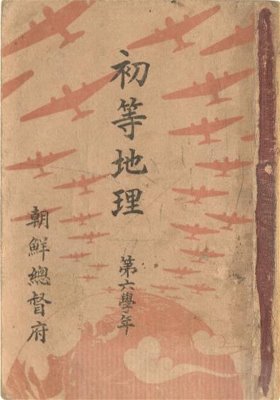 初等地理
第六學年
朝鮮總督府